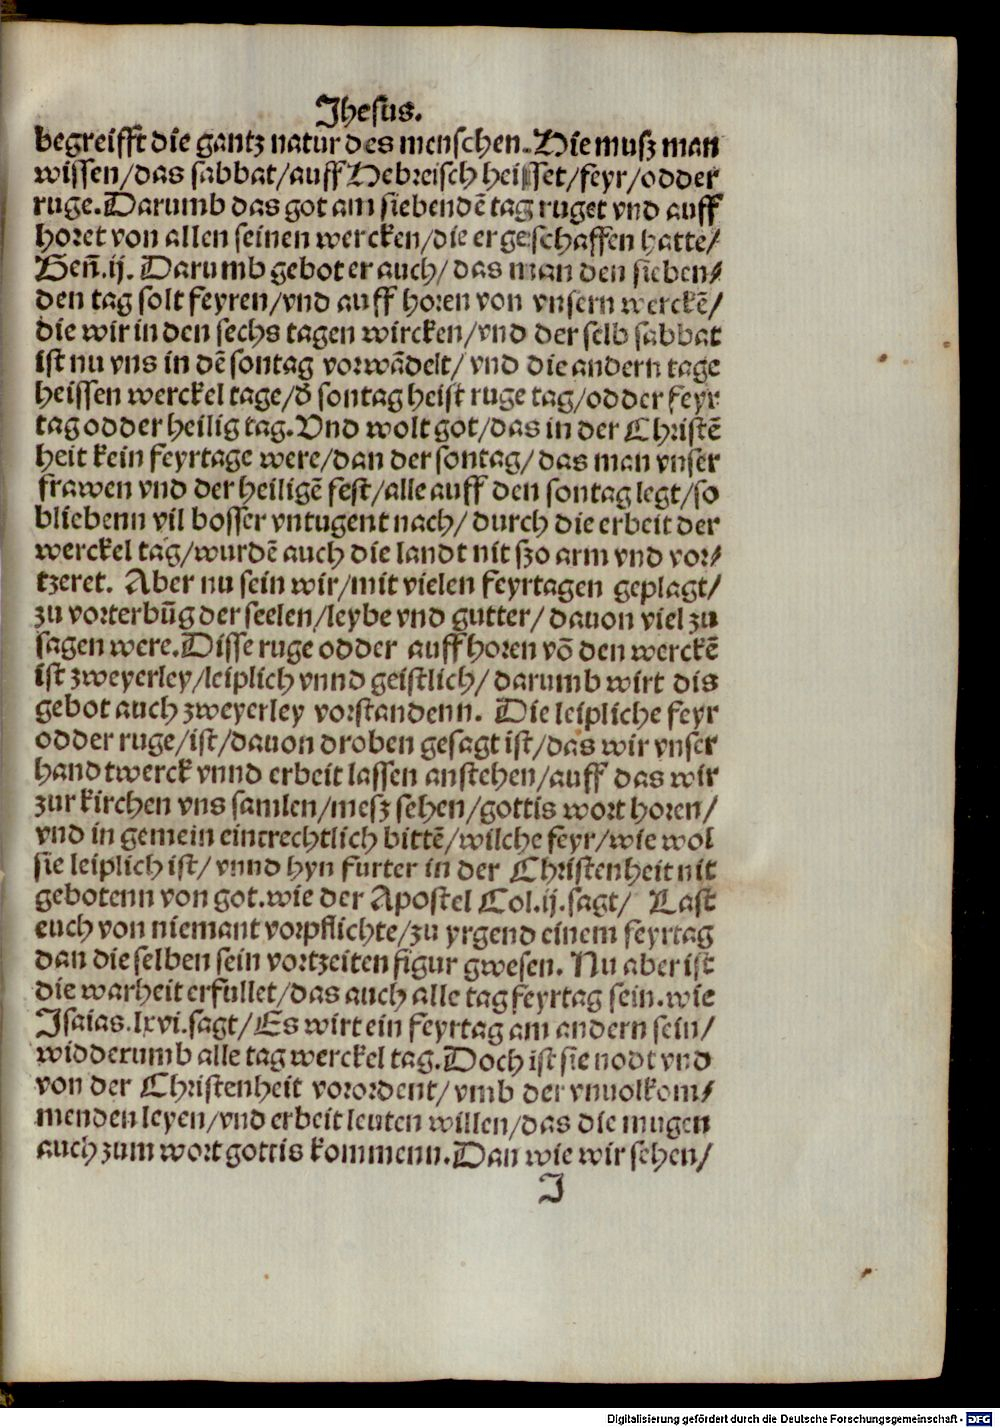 Jhesus.
begreifft die gantz natur des menschen. Hie musz man
wissen/das sabbat/auff Hebreisch heisset/feyr/odder
ruge. Darumb das got am siebendē tag ruget vnd auff
horet von allen seinen wercken/die er geschaffen hatte/
Gen̄.ij. Darumb gebot er auch/das man den sieben/
den tag solt feyren/vnd auff horen von vnsern werckē/
die wir in den sechs tagen wircken/vnd der selb sabbat
ist nu vns in dē sontag vorwādelt/ vnd die andern tage
heissen werckel tage/d̄ sontag heist ruge tag/odder feyr
tag odder heilig tag. Vnd wolt got/das in der Christē
heit kein feyrtage were/dan der sontag/das man vnser
frawen vnd der heiligē fest/alle auff den sontag legt/so
bliebenn vil bosser vntugent nach/ durch die erbeit der
werckel tag/wurdē auch die landt nit szo arm vnd vor/
tzeret. Aber nu sein wir/mit vielen feyrtagen geplagt/
zu vorterbūg der seelen/leybe vnd gutter/ dauon viel zu
sagen were. Disse ruge odder auff horen vō den werckē
ist zweyerley/leiplich vnnd geistlich/ darumb wirt dis
gebot auch zweyerley vorstandenn. Die leipliche feyr
odder ruge/ist/dauon droben gesagt ist/das wir vnser
handtwerck vnnd erbeit lassen anstehen/auff das wir
zur kirchen vns samlen/mesz sehen/gottis wort horen/
vnd in gemein eintrechtlich bittē/wilche feyr/wie wol
sie leiplich ist/ vnnd hyn furter in der Christenheit nit
gebotenn von got. wie der Apostel Col.ij. sagt/ Last
euch von niemant vorpflichte/zu yrgend einem feyrtag
dan die selben sein vortzeiten figur gwesen. Nu aber ist
die warheit erfullet/das auch alle tag feyrtag sein. wie
Isaias.lxvi.sagt/Es wirt ein feyrtag am andern sein/
widderumb alle tag werckel tag. Doch ist sie nodt vnd
von der Christenheit vorordent/ vmb der vnuolkom/
menden leyen/vnd erbeit leuten willen/das die mugen
auch zum wort gottis kommenn. Dan wie wir sehen/
J
Digitalisierung gefördert durch die Deutsche Forschungsgemeinschaft - DFG